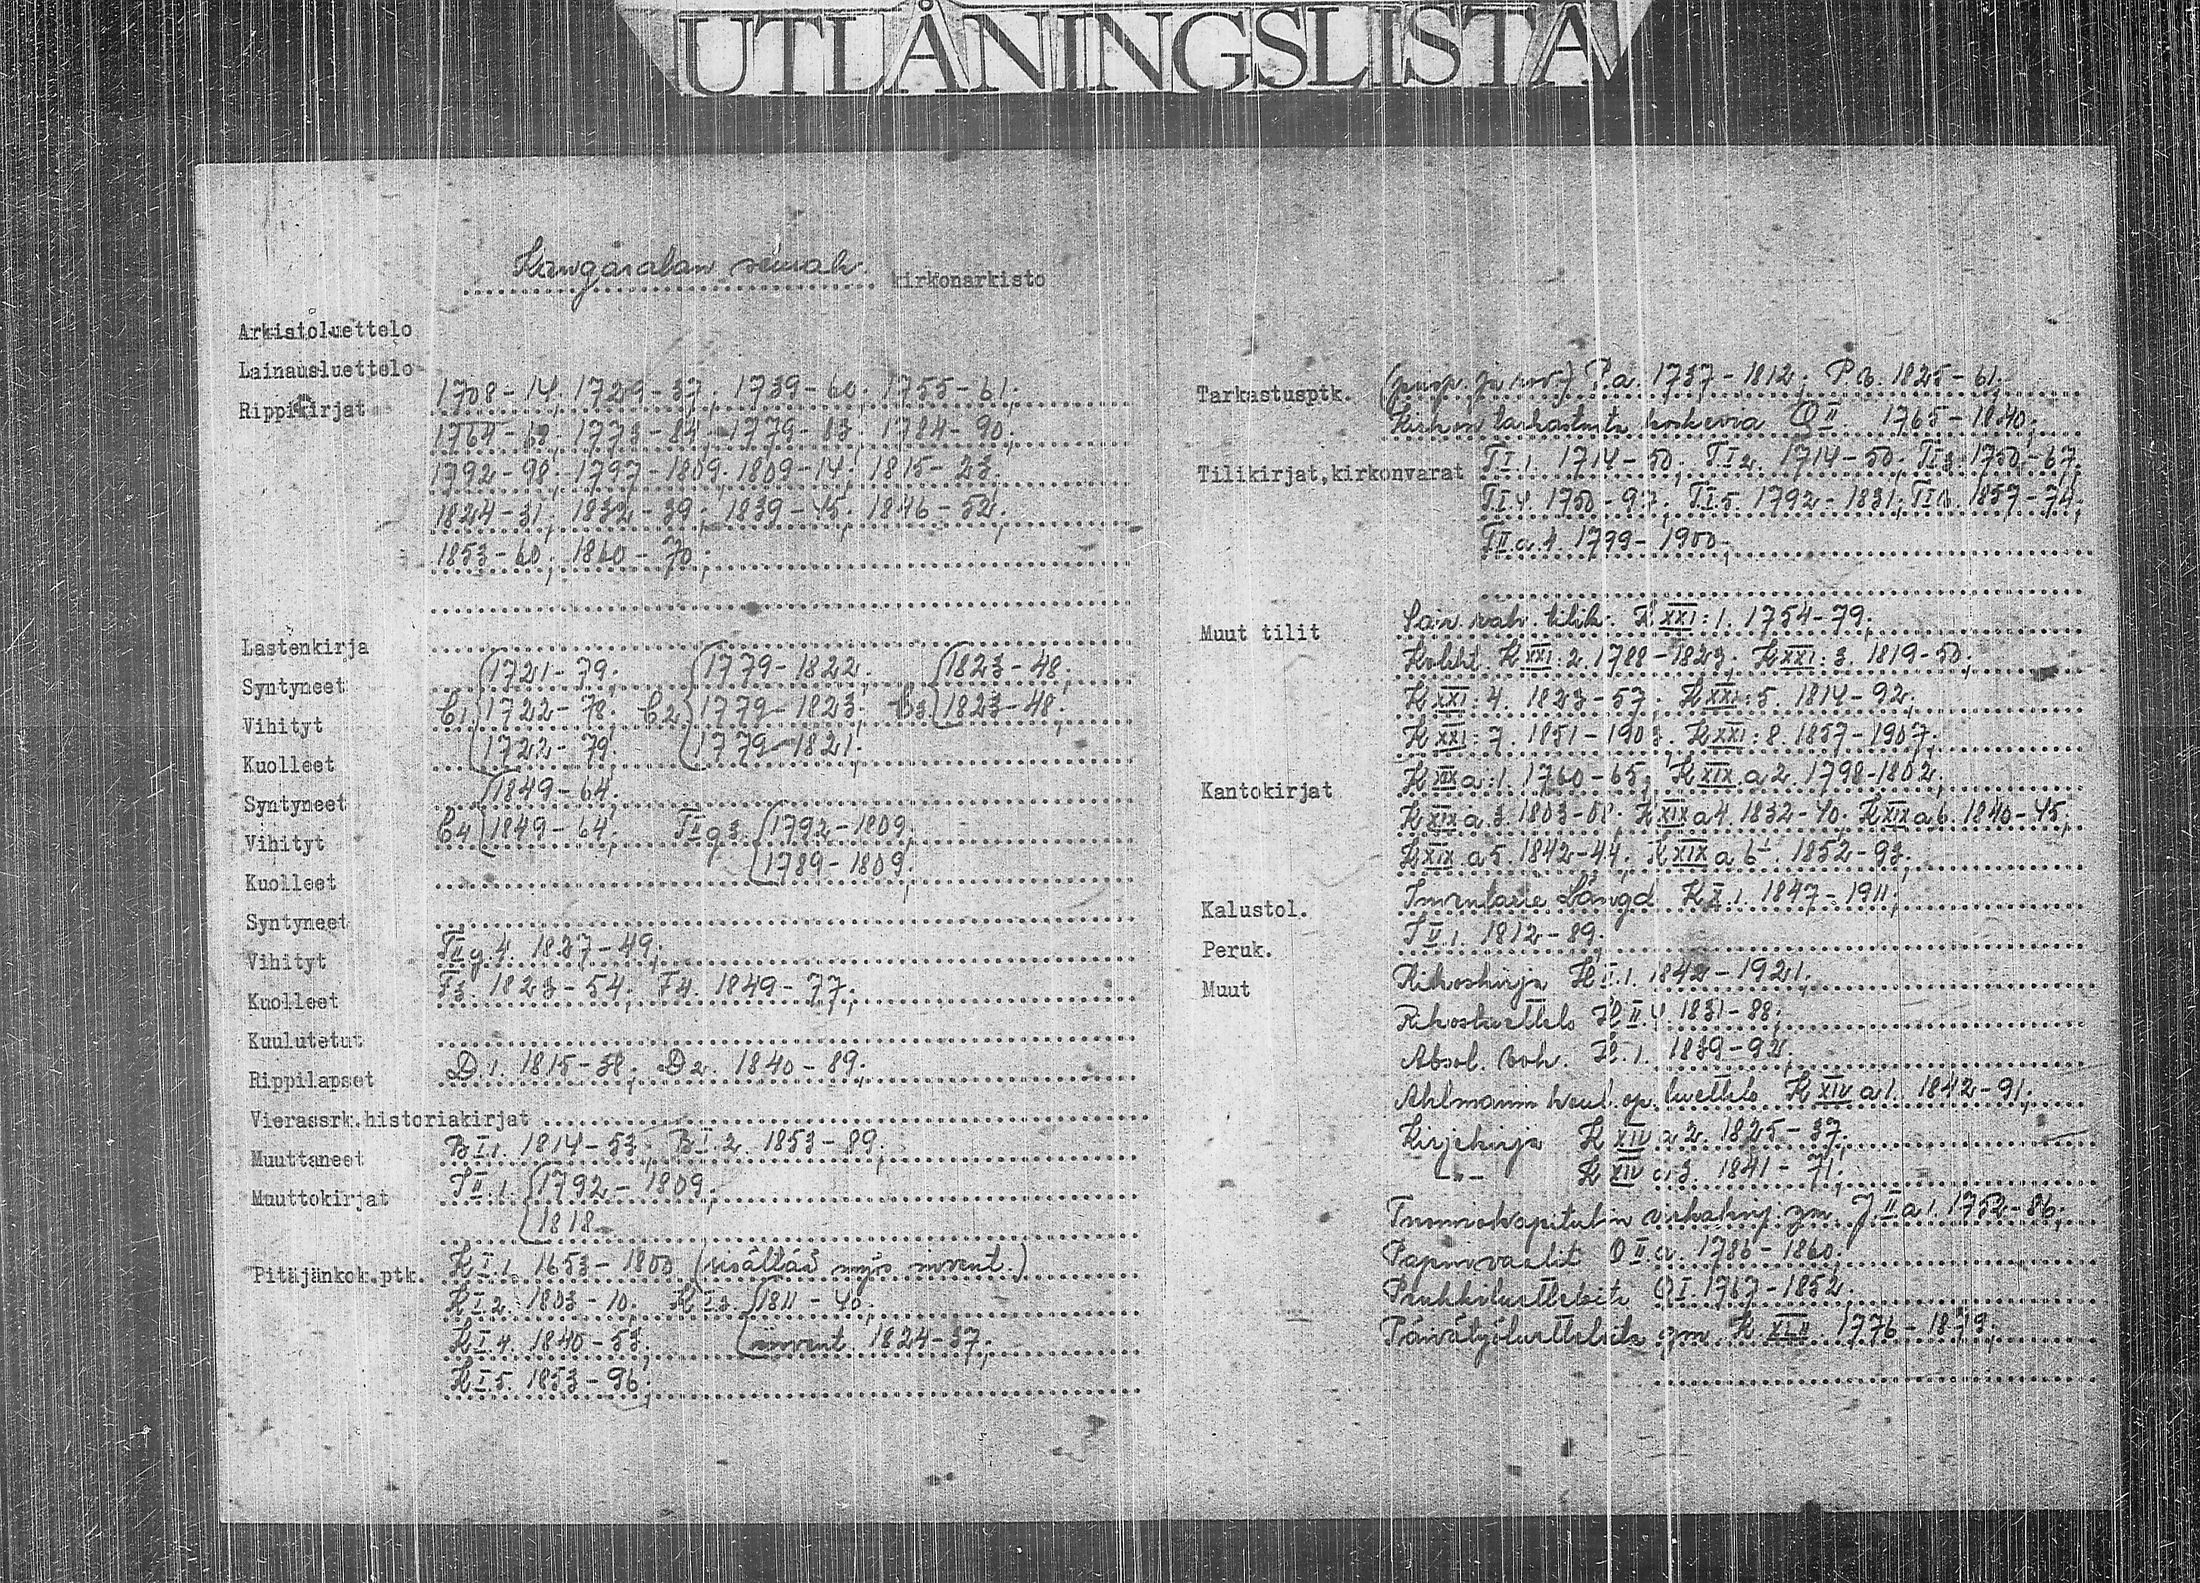 UTLÅNINGSLISTA
Kangasalan seurak. kirkonarkisto
Arkistoluettelo
Lainausluettelo
Rippikirjat 1708-14; 1729-37; 1739-60; 1755-61;
1764-68; 1773-84; 1779-83; 1784-90;
1792-98; 1797-1809; 1809-14; 1815-23;
1824-31; 1832-39; 1839-45; 1846-52;
1853-60; 1860-70;
Lastenkirja
Syntyneet 1721-79; 1779-1822; 1823-48;
Vihityt C1. 1722-78; C2 1779-1823; C3 1823-48;
Kuolleet 1722-79; 1779-1821;
Syntyneet 1849-64;
Vihityt C4 1849-64; TII g3. 1792-1809;
1789-1809;
Kuolleet
Syntyneet
Vihityt TII g.4. 1837-49;
Kuolleet F3. 1823-54; F4. 1849-77;
Kuulutetut
Rippilapset D.1. 1815-38; D2. 1840-89;
Vierassrk.historiakirjat
Muuttaneet BI1. 1814-53; BI.2. 1853-89;
Muuttokirjat TII:1. 1792-1809;
1818
Pitäjänkok.ptk. KI.1. 1653-1800 (sisältää myös invent.)
KI2. 1803-10; KI3. 1811-40;
KI4. 1840-53; invent 1824-37;
KI5. 1853-96;
Tarkastusptk. (piisp. ja rov.) P.a. 1737-1812; P.b. 1825-61;
Kirkon tarkastusta koskevia QII. 1765-1840;
Tilikirjat,kirkonvarat TI.1. 1714-50; TI2. 1714-50; TI3 1750-67;
TI.4. 1750-97; TI.5. 1792-1831; TI6. 1857-74;
TII a.1. 1799-1900;
Muut tilit tilik. KXXI:1. 1754-79;
KXXI:2. 1788-1823; KXXI:3. 1819-50;
KXXI:4. 1823-57; KXXI:5. 1814-92;
KXXI:7. 1851-1903. KXXI:8. 1857-1907;
Kantokirjat KXIX a:1. 1760-65; KXIX.a2. 1798-1802;
KXIX a.3. 1803-08; KXIX a4. 1832-40; KXIX a6. 1840-45;
KXIX a5. 1842-44; KXIX a 6. 1852-93;
Kalustol. Inventarie Längd KX.1. 1847-1911;
Peruk. TII.1. 1812-89;
Muut Rikoskirja HI.1. 1842-1921;
Rikosluettelo HII.4. 1831-88;
Absol. 1. 1839-92;
Ahlmannin koul. op. luettelo KXIV a1. 1842-91;
Kirjekirja KXIV a2. 1825-37;
-"- KXIV a3. 1841-71;
Tuomiokapitulin ym. JII a1. 1752-86;
Papinvaalit OII.a. 1786-1860;
Penkkiluetteloita QI. 1767-1852.
Päivätyöluetteloita ym. KXLII. 1776-1879;